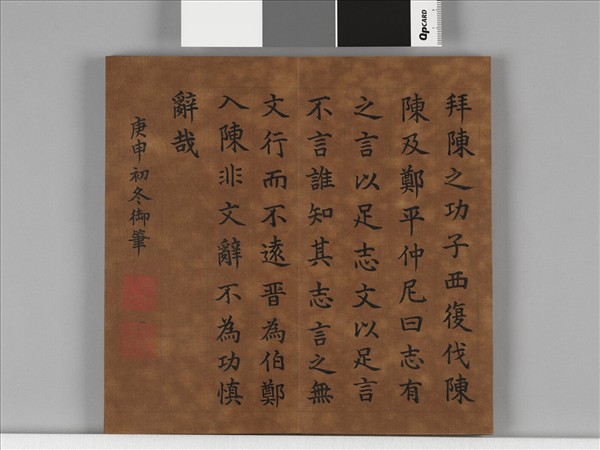 拜陳之功子西復伐陳
陳及鄭平仲尼曰志有
之言以足志文以足言
不言誰知其志言之無
文行而不遠晋為伯鄭
入陳非文辭不為功慎
辭哉
庚申初冬御筆
QPCARD